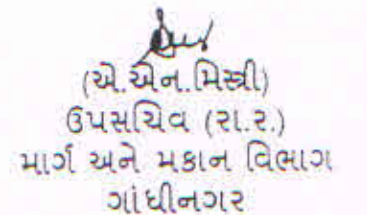 (એ.એન.મિસ્ત્રી)
ઉપસચિવ (રા.ર.)
માર્ગ અને મકાન વિભાગ
ગાંધીનગર